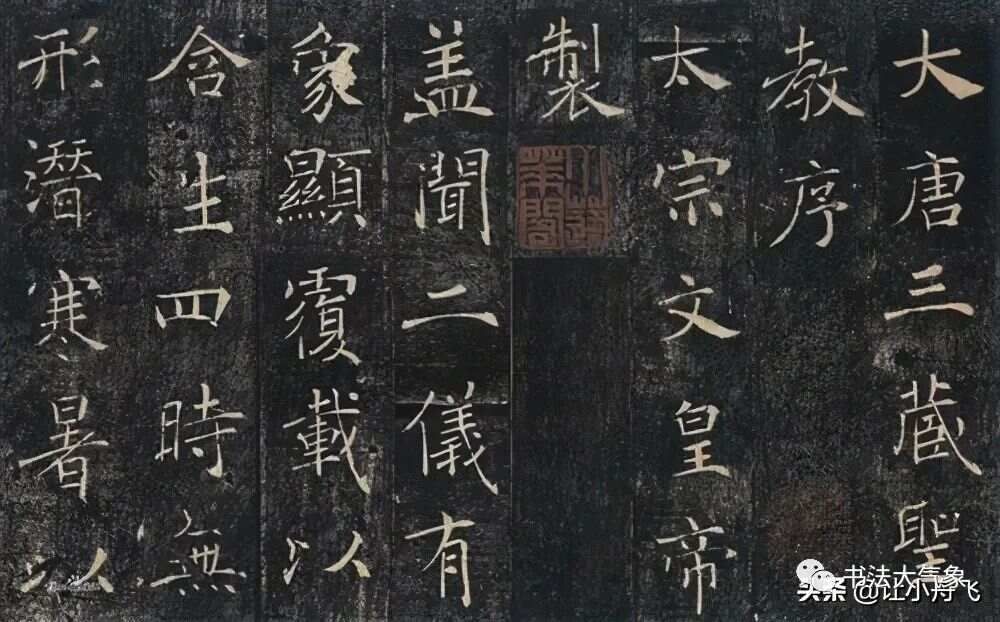 大唐三藏聖
教序
太宗文皇帝
製
盖聞二儀有
象顯覆載以
含生四時無
形潛寒暑以
书法大气象
头条@让小舟飞